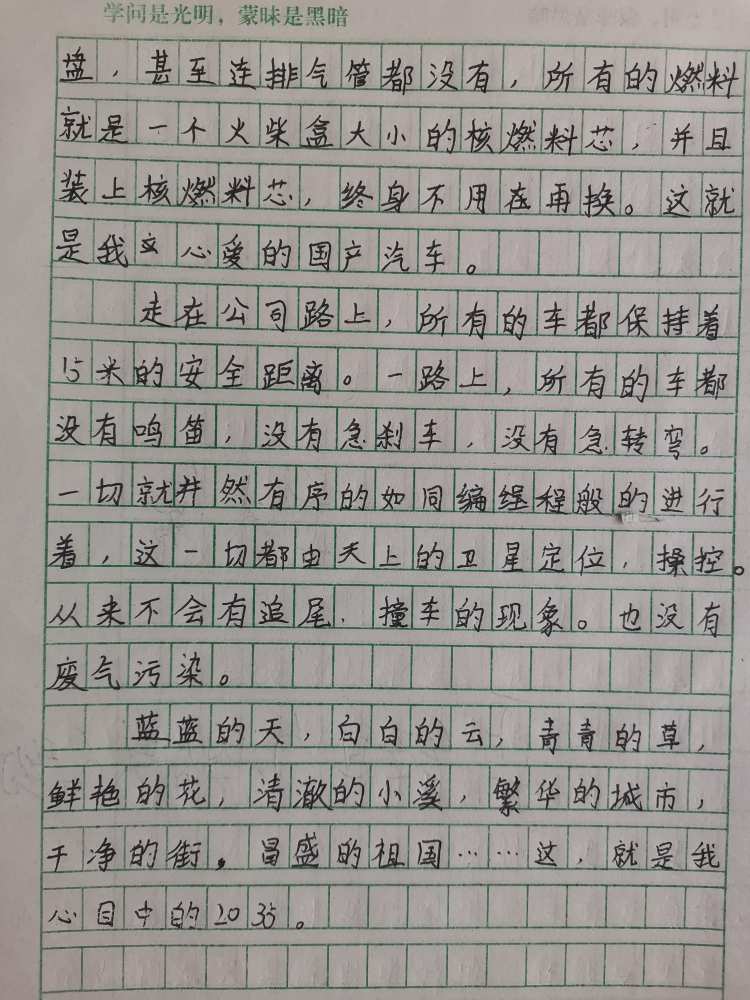 学问是光明，蒙昧是黑暗
盘，甚至连排气管都没有，所有的燃料
就是一个火柴盒大小的核燃料芯，并且
装上核燃料芯，终身不用在再换。这就
是我心爱的国产汽车。
走在公司路上，所有的车都保持着
15米的安全距离。一路上，所有的车都
没有鸣笛，没有急刹车，没有急转弯。
一切就井然有序的如同编程程般的进行
着，这一切都由天上的卫星定位，操控。
从来不会有追尾.撞车的现象。也没有
废气污染。
蓝蓝的天，白白的云，青青的草，
鲜艳的花，清澈的小溪，繁华的城市，
干净的街，昌盛的祖国……这，就是我
心目中的2035。